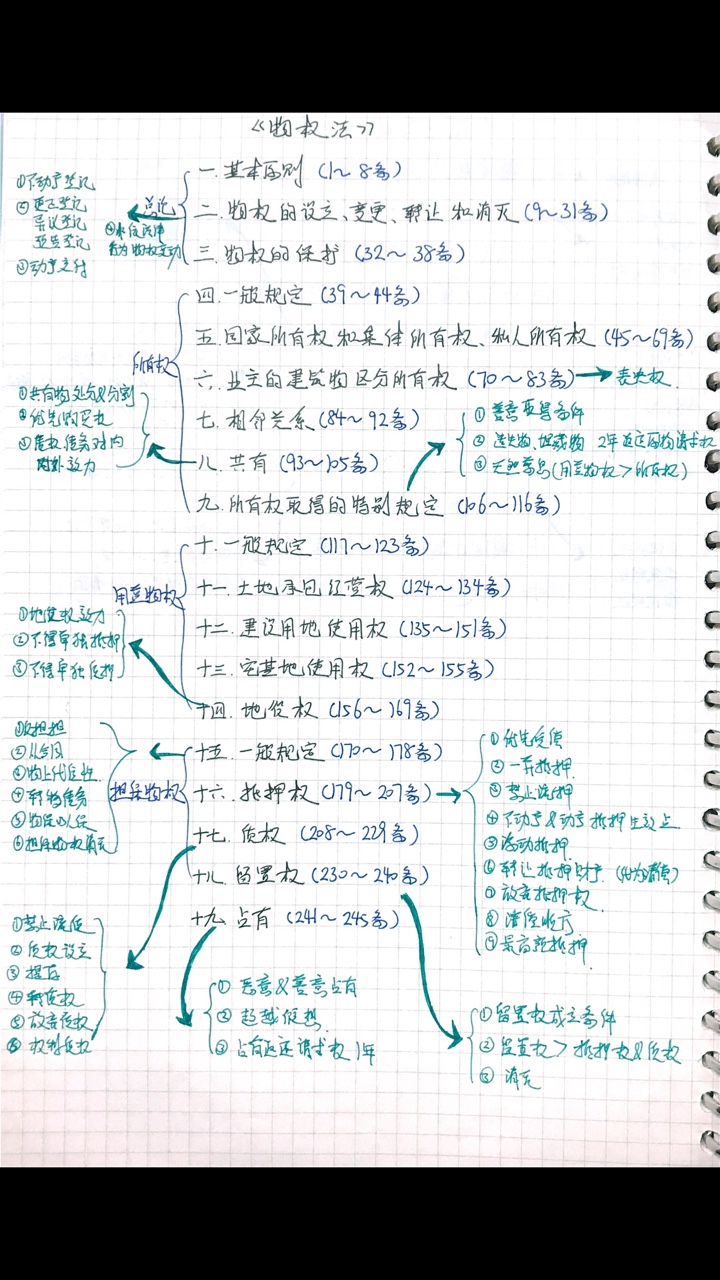 《物权法》
一.基本原则 (1~8条)
总论
二.物权的设立、变更、转让和消灭 (9~31条)
三.物权的保护 (32~38条)
①不动产登记
②更正登记
异议登记
预告登记
③动产交付
④非依法律
行为物权变动
四.一般规定 (39~44条)
五.国家所有权和集体所有权、私人所有权 (45~69条)
所有权
六.业主的建筑物区分所有权 (70~83条)
表决权
七.相邻关系 (84~92条)
八.共有 (93~105条)
九.所有权取得的特别规定 (106~116条)
①共有物处分&分割
②优先购买权
③债权债务对内
对外效力
①善意取得条件
②遗失物、埋藏物 2年返还原物请求权
③天然孳息(用益物权>所有权)
十.一般规定 (117~123条)
用益物权
十一.土地承包经营权 (124~134条)
十二.建设用地使用权 (135~151条)
十三.宅基地使用权 (152~155条)
十四.地役权 (156~169条)
①地役权效力
②不得单独抵押
③不得单独
十五.一般规定 (170~178条)
担保物权
十六.抵押权 (179~207条)
十七.质权 (208~229条)
十八.留置权 (230~240条)
十九.占有 (241~245条)
①反担保
②从合同
③物上代位性
④转移债务
⑤物保&人保
⑥担保物权消灭
①优先受偿
②一并抵押
③禁止流押
④不动产&动产抵押生效点
⑤浮动抵押
⑥转让抵押财产
⑦放弃抵押权
⑧清偿顺序
⑨最高额抵押
①禁止流质
②质权设立
③提存
④转质权
⑤放弃质权
⑥权利质权
①恶意&善意占有
②
③占有返还请求权 1年
①留置权成立条件
②留置权>抵押权&质权
③消灭